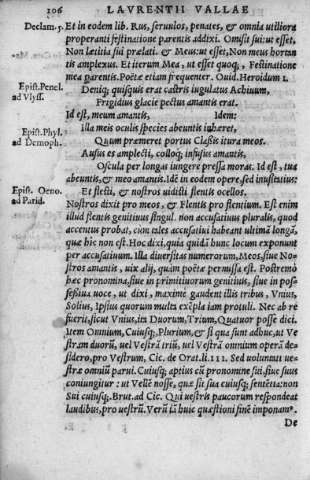 206 LAVRENTII VALLAE
Declam.5. Et in eodem lib. Rus, seruulos, penates, & omnia utiliora
properanti festinatione parentis addixi. Omisit sui: ut esset,
Non lætitia sui prælati. & Meus: ut esset, Non meus horta
tis amplexus. Et iterum Mea, ut esset quoq;, Festinatione
mea parentis. Poëtæ etiam frequenter. Ouid. Heroidum 1.
Epist. Penel. Deniq; quisquis erat castris iugulatus Achiuum,
ad Vlyss. Frigidius glacie pectus amantis erat.
Id est, meum amantis, Idem:
Epist. Phyl. Illa meis oculis species abeuntis inhæret,
ad Demoph. Quum præmeret portus Classis itura meos.
Ausus es amplecti, colloq; infusus amantis,
Oscula per longas iungere pressa moras. Id est, tua
abeuntis, & meo amantis. Idē in eodem opere, sed inusitatius:
Epist. Oeno. Et flesti, & nostros uidisti flentis ocellos.
ad Parid. Nostros dixit pro meos, & Flentis pro flentium. Est enim
illud flentis genitiuus singul. non accusatiuus pluralis, quod
accentus probat, cum tales accusatiui habeant ultimā longā,
quæ hîc non est. Hoc dixi, quia quidā hunc locum exponunt
per accusatiuum. Illa diuersitas numerorum, Meos, siue No-
stros amantis, uix alij, quàm poëtæ permissa est. Postremò
hæc pronomina, siue in primitiuorum genitiuis, siue in pos-
sessiuâ uoce, ut dixi, maxime gaudent illis tribus, Vnius,
Solius, Ipsius quorum multa exēpla iam protuli. Nec ab re
fuerit, sicut Vnius, ita Duorum, Trium, Quatuor posse dici,
Item Omnium, Cuiusq;, Plurium, & si qua sunt adhuc, ut Ve
stram duorū, uel Vestrā triū, uel Vestrā omnium operā de-
sidero, pro Vestrum, Cic. de Orat. li. III. Sed uoluntati ue-
stræ omniū parui. Cuiusq; aptius cū pronomine sui, siue suus
coniungitur: ut Velle nosse, quæ sit sua cuiusq; sententia: non
Sui cuiusq;. Brut. ad Cic. Qui uestris paucorum respondeat
laudibus, pro uestrū. Verū iā huic quæstioni finē imponam.
De